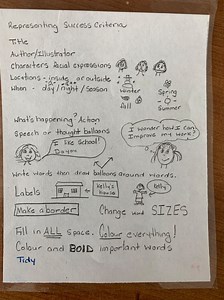 Representing Success Criteria
Title
Author/Illustrator
Characters Facial expressions
Locations - inside or outside
When - day/night/season
Winter
Spring
Fall
Summer
What's happening? Action
Speech or thought balloons
I like School!
Do you
I wonder how I can
improve my work?
Write words then draw balloons around words.
Labels
Kelly's
House
Kelly
Make a border
Change word SIZES
Fill in ALL space. Colour everything!
Colour and BOLD important words
Tidy